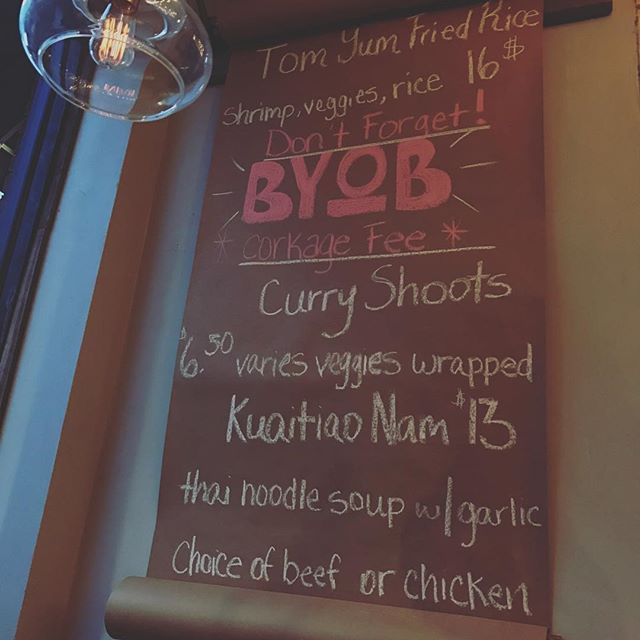 Tom Yum Fried Rice
16$
Shrimp, veggies, rice
Don't Forget!
BYOB
* Corkage Fee *
Curry Shoots
$6.50 varies veggies wrapped
Kuaitiao Nam $13
thai noodle soup w/garlic
Choice of beef or chicken